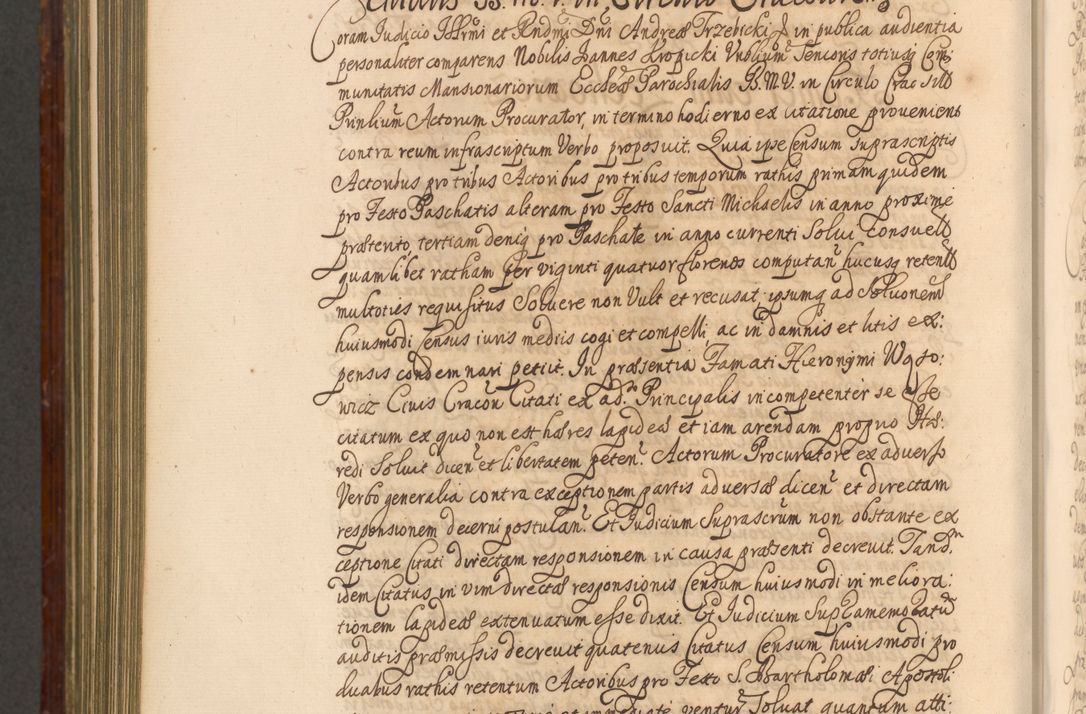 Coram Judicio Illrmi et Rndmi Dni Andreæ Trzebicki in publica audientia
personaliter comparens Nobilis Joannes Kropicki totiusq Com:
munitatis Mansionariorum Ecclæ Parochialis B.M.V. in Circulo Crac
Actorum Procurator, in termino hodierno ex citatione provenient
contra reum infrascriptum Verbo proposuit. Quia ipse Censum suprascriptis
Actoribus pro tribus Actoribus pro tribus temporum rathis primam quidem
pro Festo Paschatis alteram pro Festo Sancti Michaelis in anno proxime
præterito, tertiam deniq pro Paschate in anno currenti Solvi consuett
quamlibet ratham per viginti quatuor florenos computan hucusq retentt
multoties requisitus Solvere non Vult et recusat, ipsumq ad Solutionem
huiusmodi Census iuris mediis cogi et compelli, ac in damnis et litis ex:
pensis condemnari petiit. In præsentia Famati Hieronymi Wqso:
wicz Civis Cracou Citati ex adso Principalis incompetenter se esse
citatum ex quo non est hæres lapideæ et iam arendam proprio Hæ:
redi Solvit dicen et libertatem peten. Actorum Procuratore ex adverso
Verbo generalia contra exceptionem partis adversæ dicen et directam
responsionem decerni postulan. Et Judicium Suprascrum non obstante ex
ceptione Citati directam responsionem in causa præsenti decrevit. Tandm
idem Citatus in vim directæ responsionis Censum huiusmodi in meliora:
tionem lapideæ extenuatum esse dixit. Et Judicium Supramemoratu
auditis præmissis decrevit quatenus Citatus Censum huiusmodi pro
duabus rathis retentum Actoribus pro Festo S. Bartholomæi Apostoli
et immediate ventur Solvat quantum atti: